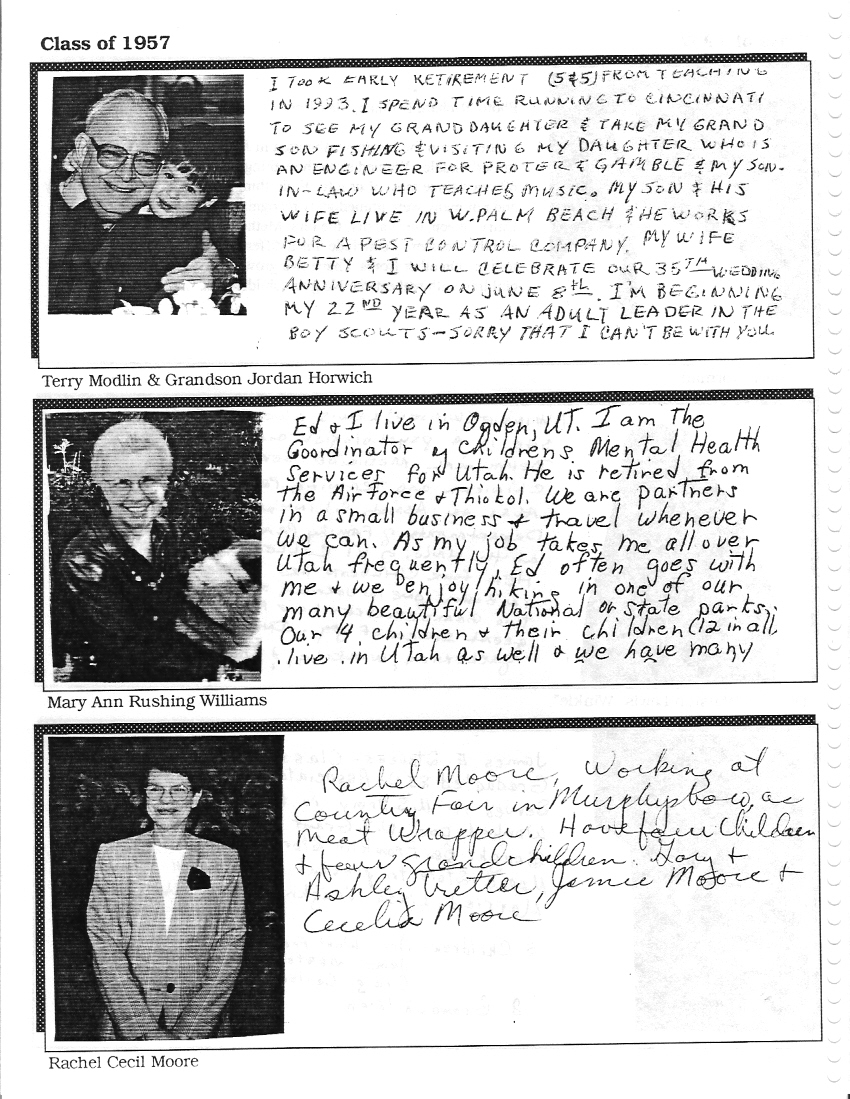 Class of 1957
I TOOK EARLY RETIREMENT (5&5) FROM TEACHING
IN 1993. I SPEND TIME RUNNING TO CINCINNATI
TO SEE MY GRANDDAUGHTER & TAKE MY GRAND
SON FISHING & VISITING MY DAUGHTER WHO IS
AN ENGINEER FOR PROTER & GAMBLE & MY SON-
IN-LAW WHO TEACHES MUSIC. MY SON & HIS
WIFE LIVE IN W. PALM BEACH & HE WORKS
FOR A PEST CONTROL COMPANY. MY WIFE
BETTY & I WILL CELEBRATE OUR 35TH WEDDING
ANNIVERSARY ON JUNE 8th. I'M BEGINNING
MY 22ND YEAR AS AN ADULT LEADER IN THE
BOY SCOUTS - SORRY THAT I CAN'T BE WITH YOU.
Terry Modlin & Grandson Jordan Horwich
Ed & I live in Ogden, UT. I am the
Coordinator of Childrens Mental Health
Services for Utah. He is retired from
the Air Force & Thiokol. We are partners
in a small business & travel whenever
we can. As my job takes me all over
Utah frequently, Ed often goes with
me & we enjoy hiking in one of our
many beautiful National or State parks.
Our 4 children & their children (12 in all
live in Utah as well & we have many
Mary Ann Rushing Williams
Rachel Moore, Working at
Country Fair in Murphysboro, as
Meat Wrapper. Have four Children
& four grandchildren. Gary &
Ashley Tretter, Jamie Moore &
Cecelia Moore
Rachel Cecil Moore